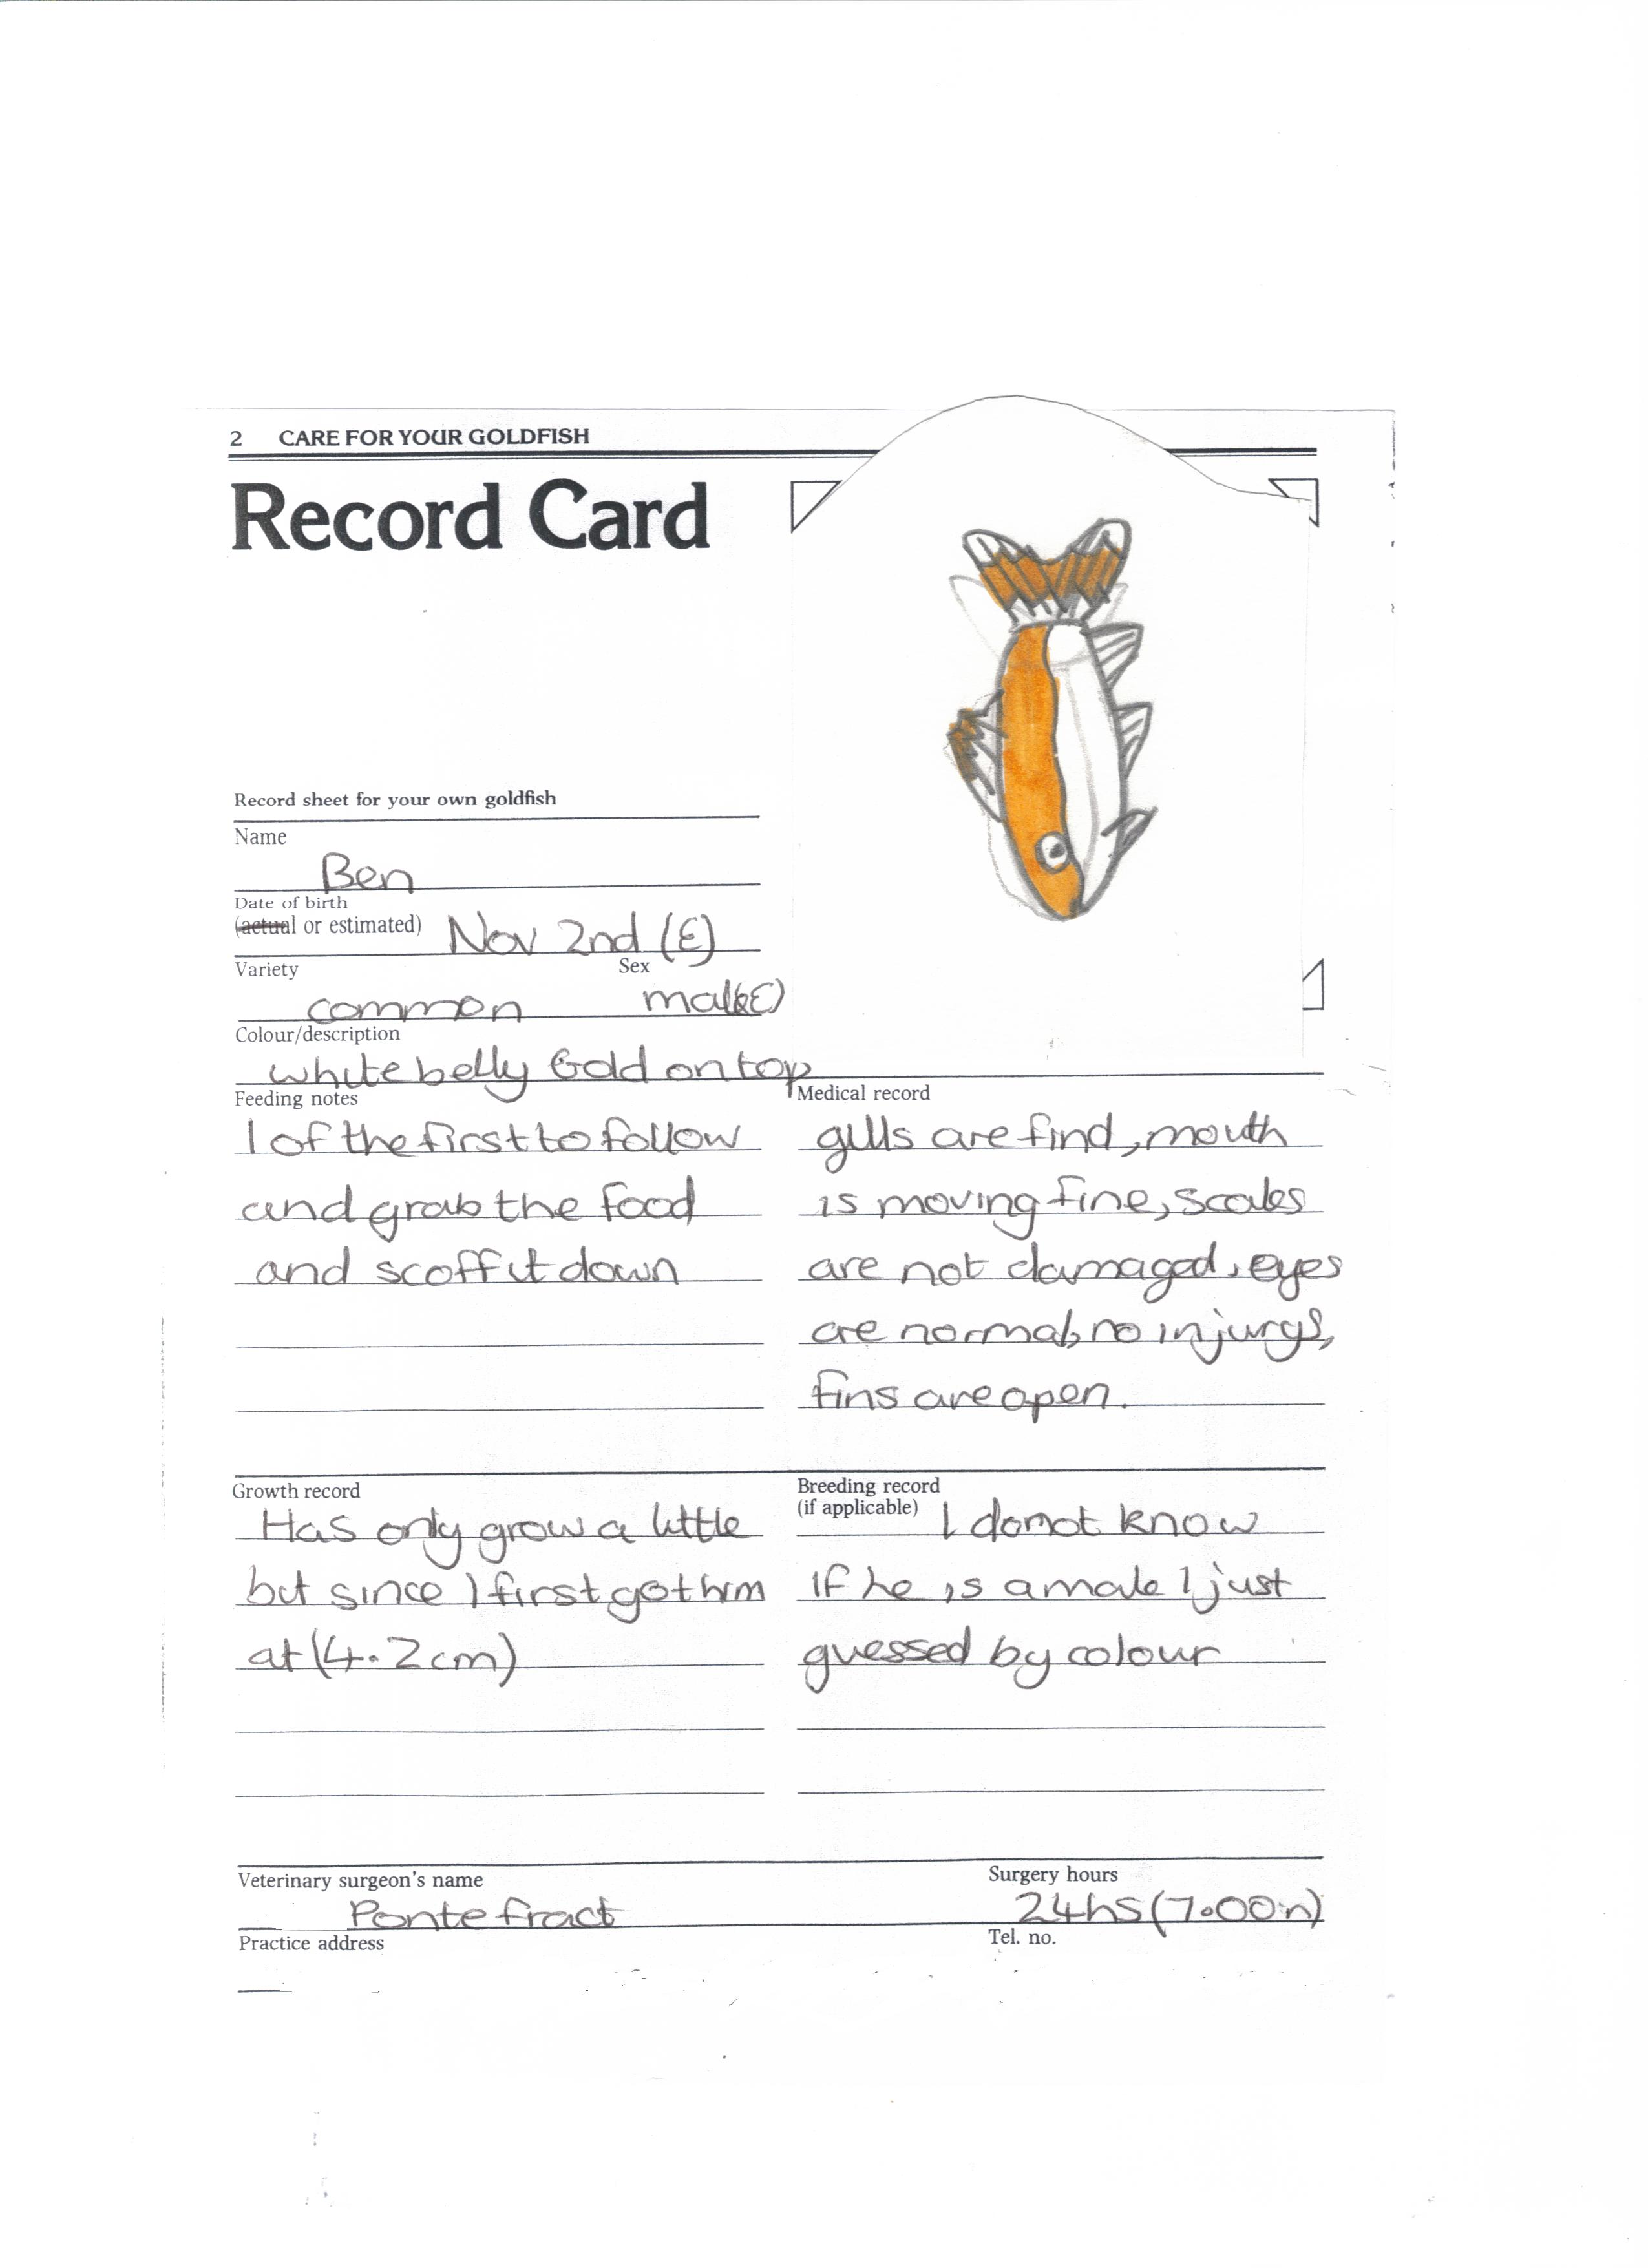 2 CARE FOR YOUR GOLDFISH
Record Card
Record sheet for your own goldfish
Name
Ben
Date of birth
(actual or estimated) Nov 2nd (E)
Variety Sex
common male(E)
Colour/description
white belly Gold on top
Feeding notes
1 of the first to follow
and grab the food
and scoff it down
Medical record
gills are find, mouth
is moving fine, scales
are not damaged, eyes
are normal, no injurys,
fins are open.
Growth record
Has only grow a little
but since I first got him
at (4.2cm)
Breeding record
(if applicable) I do not know
if he is a male I just
guessed by colour
Veterinary surgeon's name Surgery hours
Pontefract 24hs (7.00n)
Practice address Tel. no.